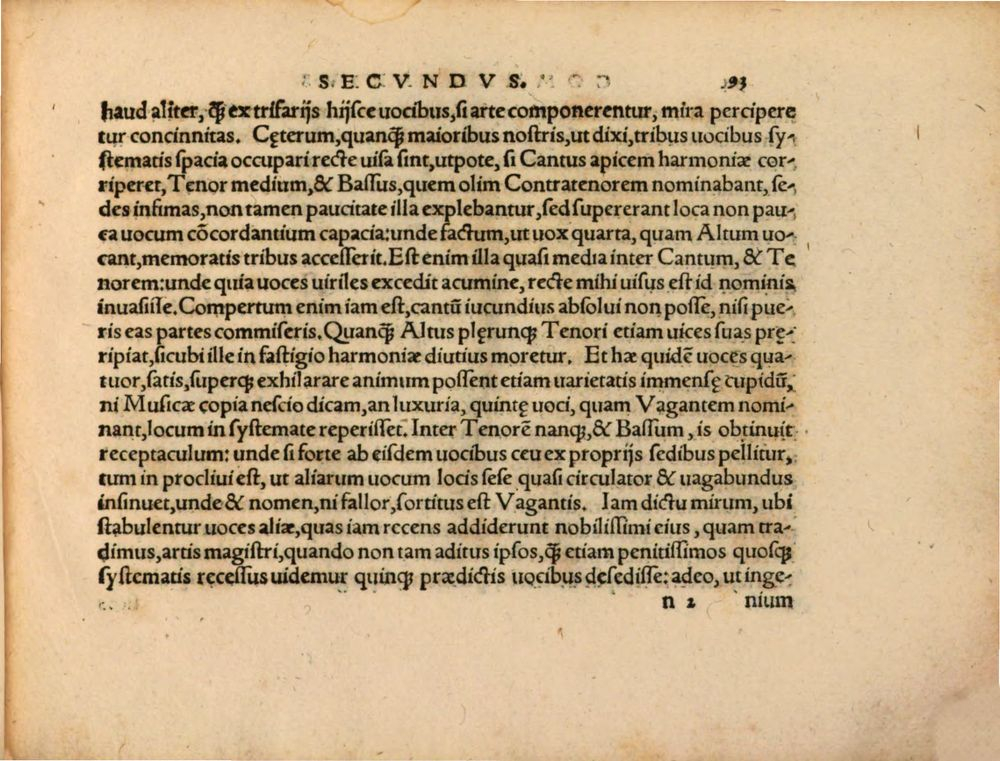 SECVNDVS. 93
haud aliter, ꝙ̃ ex trifarijs hijsce uocibus, si arte componerentur, mira percipere
tur concinnitas. Cęterum, quanꝗ̃ maioribus nostris, ut dixi, tribus uocibus sy-
stematis spacia occupari recte uisa sint, utpote, si Cantus apicem harmoniæ cor-
riperet, Tenor medium, & Bassus, quem olim Contratenorem nominabant, se-
des infimas, non tamen paucitate illa explebantur, sed supererant loca non pau-
ca uocum cõcordantium capacia: unde factum, ut uox quarta, quam Altum uo-
cant, memoratis tribus accesserit. Est enim illa quasi media inter Cantum, & Te
norem: unde quia uoces uiriles excedit acumine, recte mihi uisus est id nominis
inuasisse. Compertum enim iam est, cantũ iucundius absolui non posse, nisi pue-
ris eas partes commiseris. Quanꝗ̃ Altus plęrunꝗ Tenori etiam uices suas prę-
ripiat, sicubi ille in fastigio harmoniæ diutius moretur. Et hæ quidẽ uoces qua-
tuor, satis, superꝗ exhilarare animum possent etiam uarietatis immensę cupidũ,
ni Musicæ copia nescio dicam, an luxuria, quintę uoci, quam Vagantem nomi-
nant, locum in systemate reperisset. Inter Tenorẽ nanꝗ, & Bassum, is obtinuit
receptaculum: unde si forte ab eisdem uocibus ceu ex proprijs sedibus pellitur,
tum in procliui est, ut aliarum uocum locis sese quasi circulator & uagabundus
insinuet, unde & nomen, ni fallor, sortitus est Vagantis. Iam dictu mirum, ubi
stabulentur uoces aliæ, quas iam recens addiderunt nobilissimi eius, quam tra-
dimus, artis magistri, quando non tam aditus ipsos, ꝙ̃ etiam penitissimos quosꝗ
systematis recessus uidemur quinꝗ prædictis uocibus desedisse: adeo, ut inge-
n 2 nium